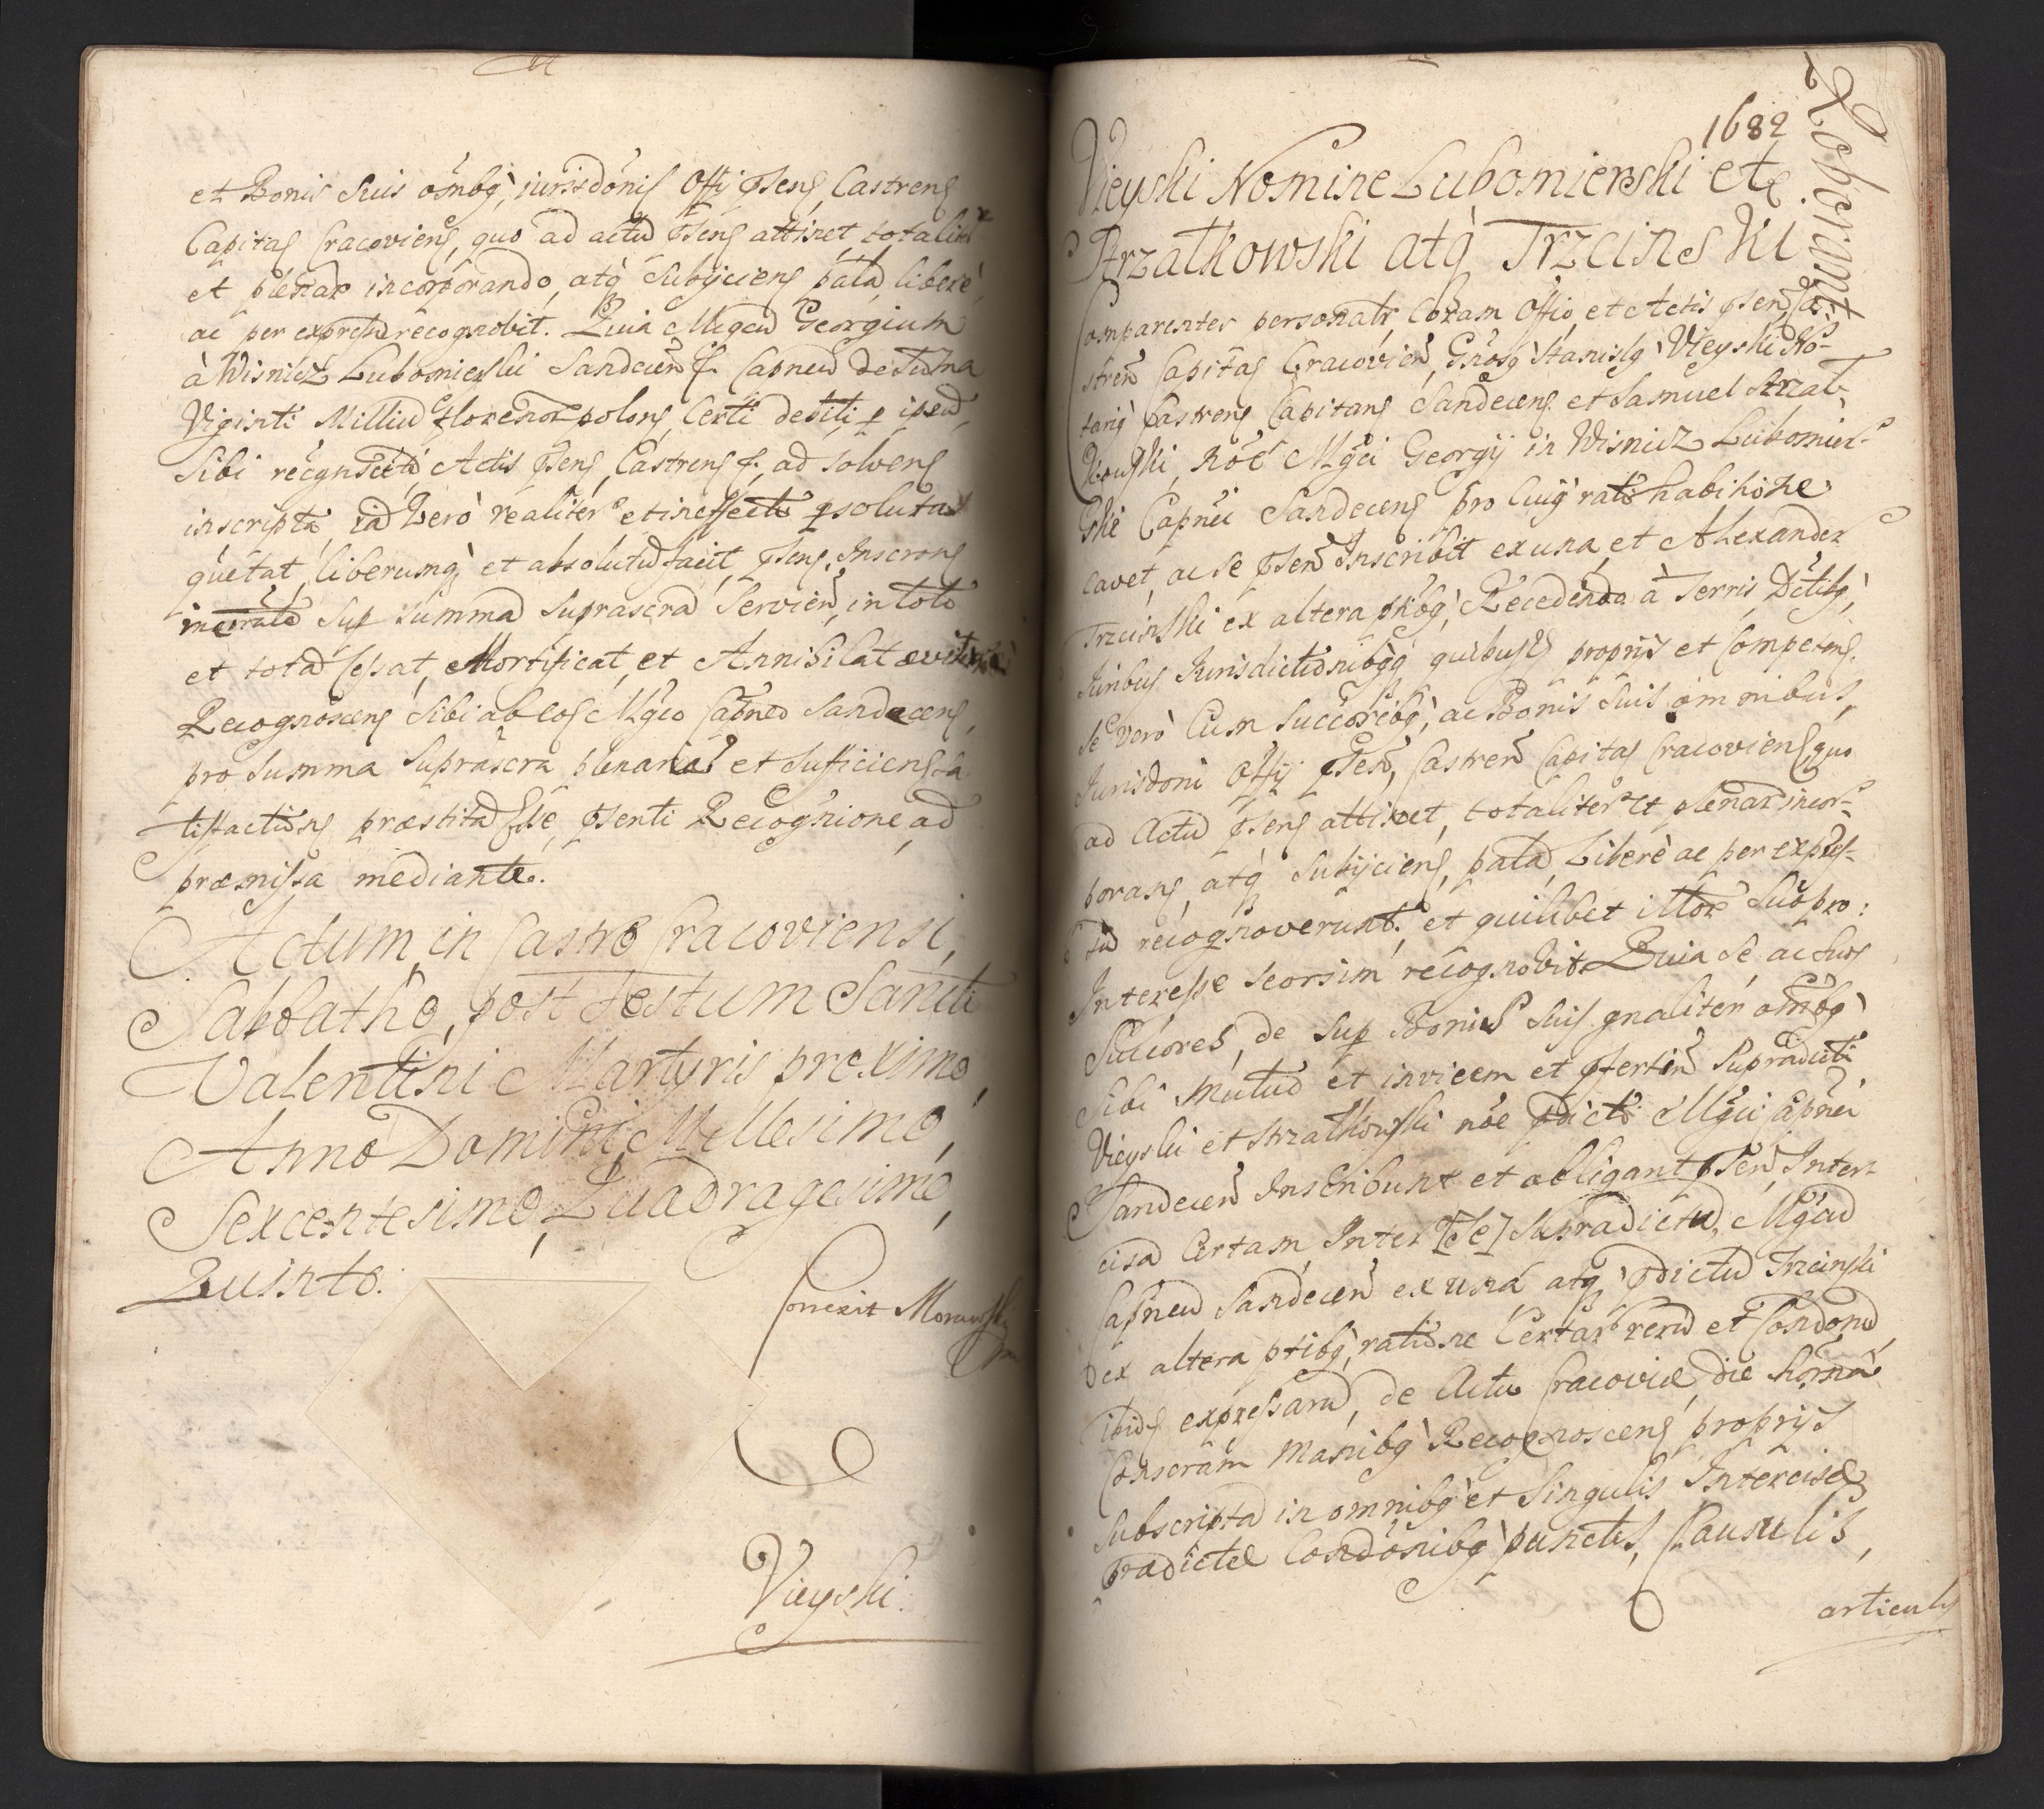 et Bonis Suis ombq, jurisdonis Offij psens, Castrens
Capitas Cracoviens, quo ad actu psens attinet, totaliter
et plenar incorporando, atq Subijciens palã, liberè,
ac per expressũ recognovit. Quia Mgcũ Georgium
à Wisnicz Lubomierski Sandecen f. Capneũ de Sũma
Viginti Milliũ florenor polons, Certi debiti p ipsũ,
Sibi Actis psens, Castrens f. ad solvens
inscripta, iã Verò realiter et in effectu psoluta
quetat, liberumq, et absolutũ facit, psens, Inscrons
Sup Summã Suprascrã Servien, in toto
et totã Cessat, Mortificat, et Annihilat
Recognoscens Sibi ab eos Mgco Capneo Sandecens,
pro Summa Suprascra plenariã et Sufficiens Sa-
tisfactione præstitã Esse, psenti Recognione ad
præmissa mediante.
Actum in Castro Cracoviensi,
Sabbatho, post Festum Sancti
Valentini Martyris proximo,
Anno Domini Millesimo,
Sexcentesimo, Quadragesimo,
Quinto.
Correxit Morawski
Vieyski.
1682
Roborant
Vieyski Nomine Lubomierski etc.
Strzatkowski atq Trzcinski
Comparentes personalr Coram Offio, et Actis psen, Ca-
stren Capitas Cracovien, Gnosq Stanislq Vieyski No-
tariq Castrens Capitans Sandecens et Samuel Strzal-
kowski, noe Mgci Georgij in Wisnicz Lubomier-
ski Capnei Sandecens pro cuiq rati habitione
cavet, ac se psen Inscribit ex una, et Alexander
Trzcinski ex altera ptibq, Recedendo à Terris, Dctibq,
Juribus Jurisdictionibqq quibusvs propriis et Competens.
Se Verò Cum Succoribq, ac Bonis Suis omnibus,
Jurisdoni Offij psen, Castren Capitas Cracoviens quo
ad Actũ psens attinet, totaliter et plenar incor-
porans, atq Subijciens, palã, Liberè ac per expres-
sũ recognoverunt. et quilibet illor Suo pro:
Interesse seorsim recognovit. Quia Se ac Suos
Succores, de Sup Bonis Suis gnaliter ombq
Sibi Mutuo et invicem et psertim Supradicti
Vieyski et Strzalkowski noe pdicti Mgci Capnei
Sandecen Inscribunt et obligant psen, Inter-
cisã Certam, Inter [Se] Supradictũ, Mgcũ
Capneũ Sandecen ex una atq pdictũ Trzcinski
ex altera ptibq, ratione Certar rerũ et Condonũ
ibids expressarũ, de Actu Cracoviæ, die hornã
Conscram Manibq Recognoscens proprijs
Subscriptã in omnibq et Singulis Intercisæ
prædictæ Condonibq punctis, Clausulis,
articulis